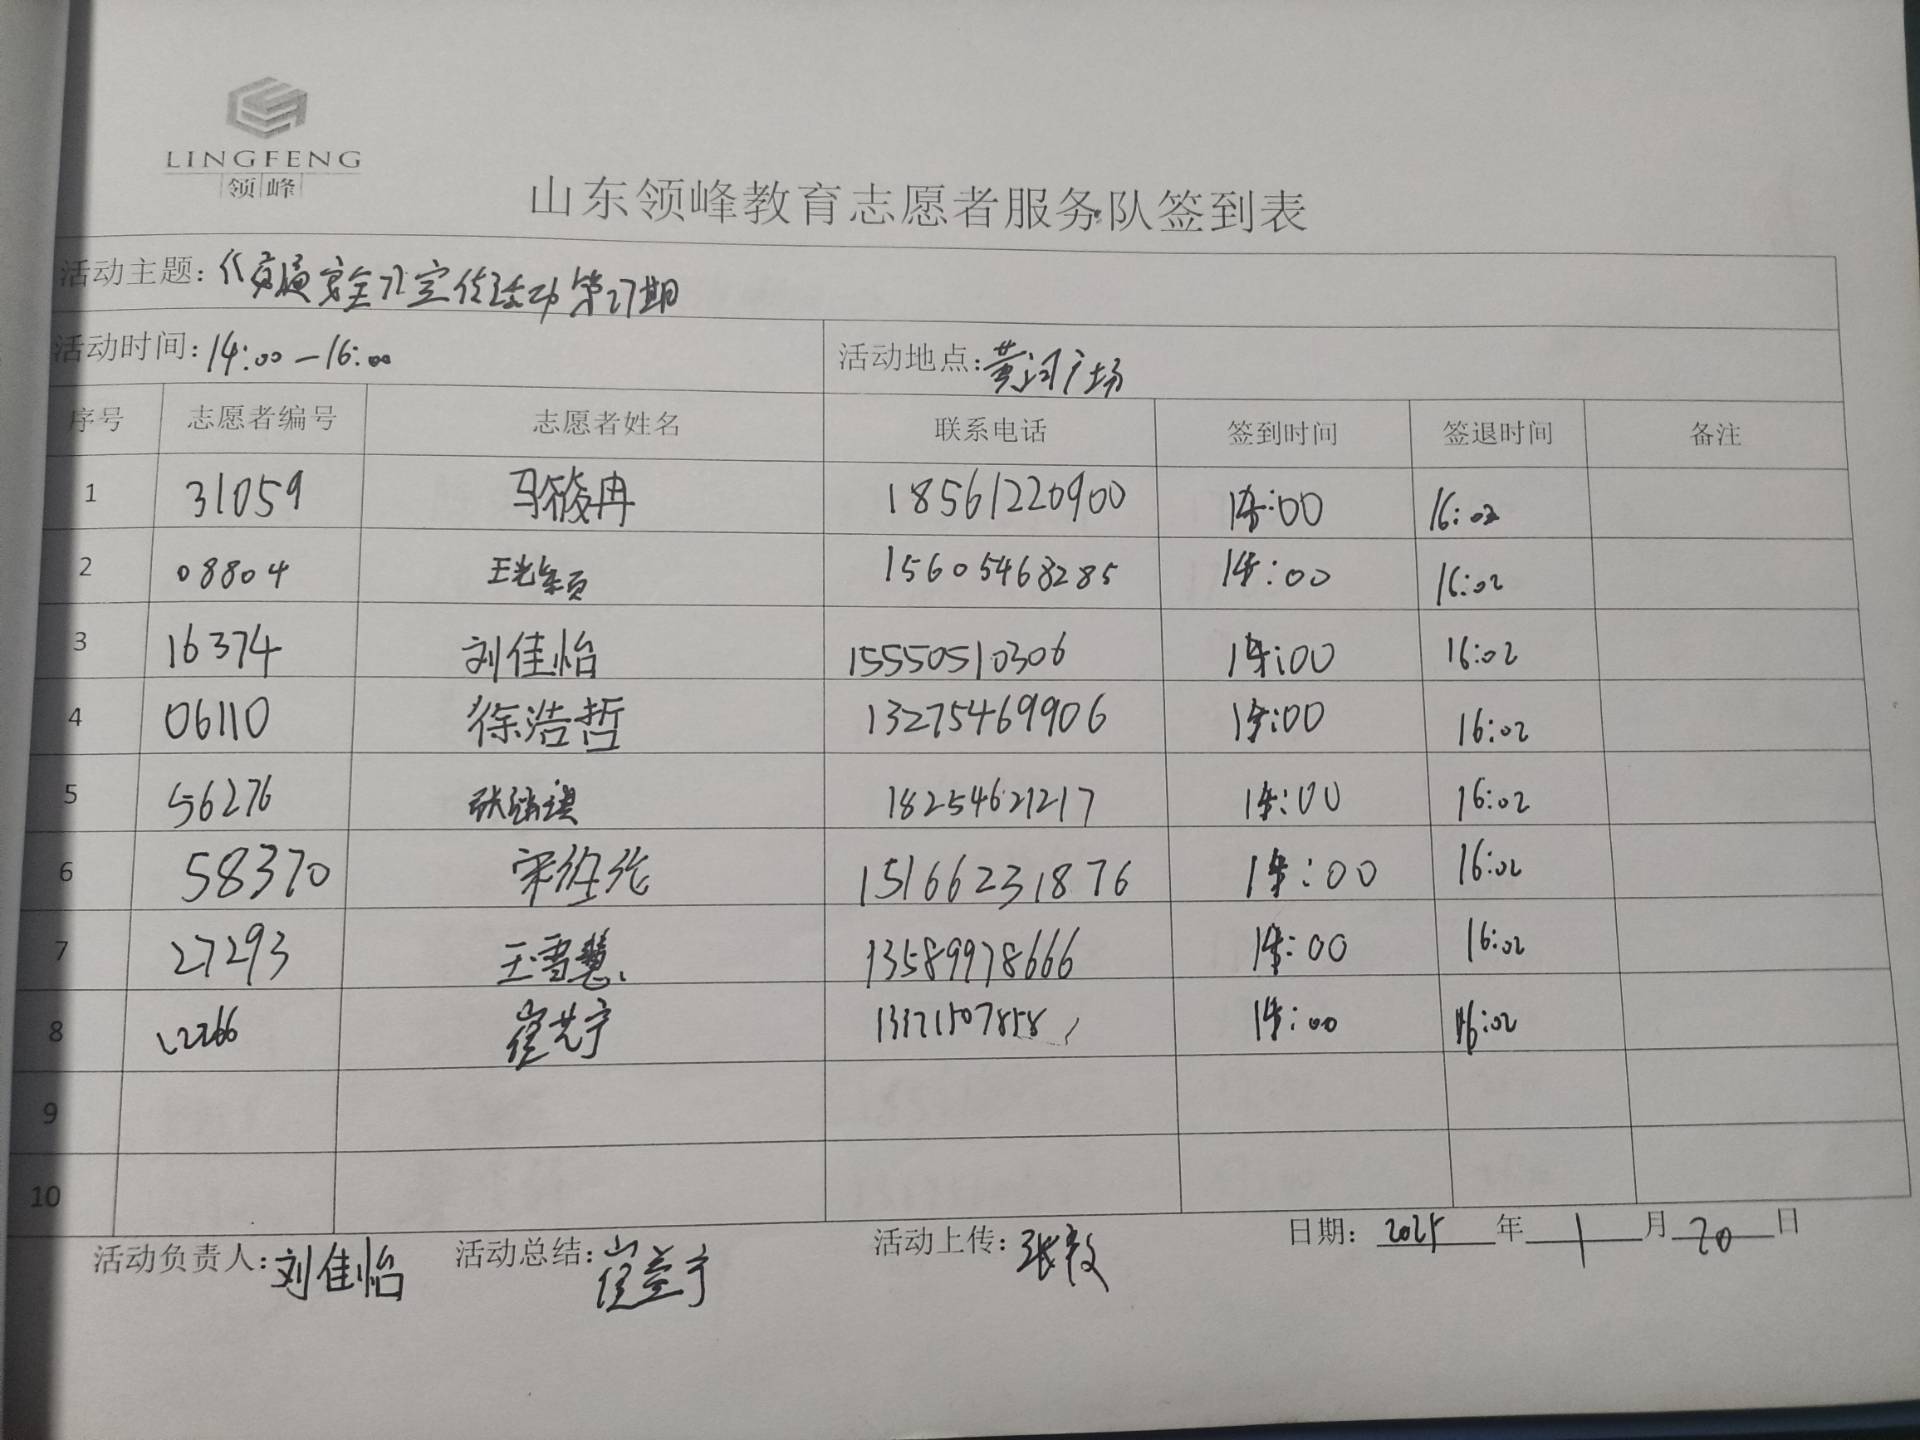 LINGFENG
领峰
山东领峰教育志愿者服务队签到表
活动主题:《交通安全》宣传活动第27期
活动时间:14:00-16:00 活动地点:黄河广场
序号 志愿者编号 志愿者姓名 联系电话 签到时间 签退时间 备注
1 31059 马筱冉 18561220900 14:00 16:02
2 08804 15605468285 14:00 16:02
3 16374 刘佳怡 15550510306 14:00 16:02
4 06110 徐浩哲 13275469906 14:00 16:02
5 56276 18254621217 14:00 16:02
6 58370 15166231876 14:00 16:02
7 27293 王雪慧 13589978666 14:00 16:02
8 14:00 16:02
9
10
活动负责人:刘佳怡 活动总结: 活动上传: 日期: 2025 年 1 月 20 日